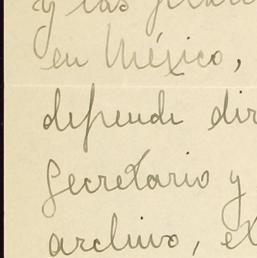 y las
en México,
depende dir
Secretario y
archivo, ex